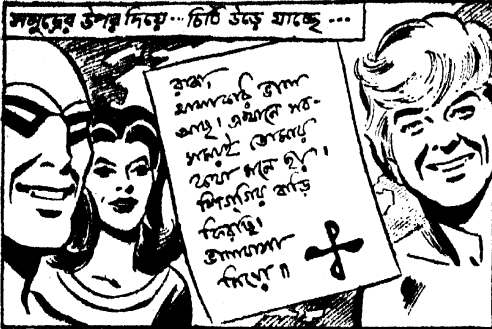 সমুদ্রের উপর দিয়ে... চিঠি উড়ে যাচ্ছে...
বাবা,
আশাকরি ভাল
আছ। এখানে সব-
সময়ই তোমার
কথা মনে হয়।
শিগ্‌গির বাড়ি
ফিরছি।
ভালবাসা
নিও॥